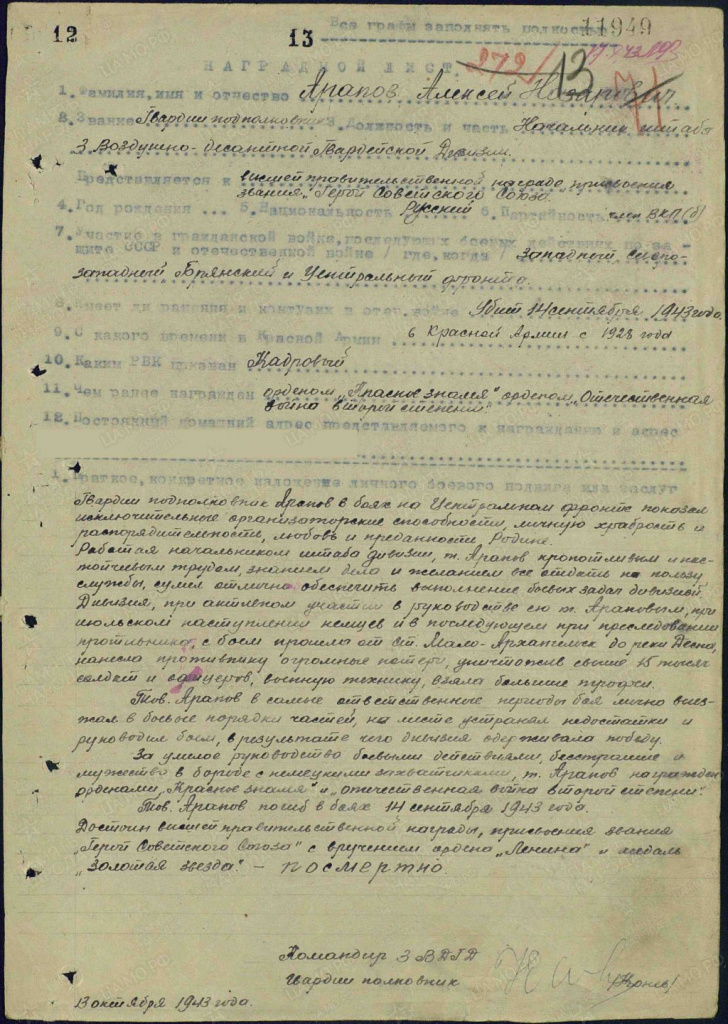 12
13
Все графы заполнять полностью
11949
НАГРАДНОЙ ЛИСТ
13
1. Фамилия, имя и отчество Арапов Алексей Назарович
2. Звание Гвардии подполковник 3. Должность и часть Начальник штаба
3 Воздушно-десантной Гвардейской Дивизии.
Представляется к высшей правительственной награде, присвоения
звания „Герой Советского Союза
4. Год рождения ... 5. Национальность Русский 6. Партийность член ВКП(б)
7. Участие в гражданской войне, последующих боевых действиях по за-
щите СССР и отечественной войне / где, когда / Западный Северо-
западный Брянский и Центральный фронта.
8. Имеет ли ранения и контузии в отеч. войне Убит 14 сентября 1943 года.
9. С какого времени в Красной Армии в Красной Армии с 1928 года
10. Каким РВК призван Кадровый
11. Чем ранее награжден орденом „Красное знамя" орденом „Отечественная
война второй степени".
12. Постоянный домашний адрес представляемого к награждению и адрес
1. Краткое, конкретное изложение личного боевого подвига или заслуг
Гвардии подполковник Арапов в боях на Центральном фронте показал
исключительные организаторские способности, личную храбрость и
распорядительность, любовь и преданность Родине.
Работая начальником штаба дивизии, т. Арапов кропотливым и нас-
тойчевым трудом, знанием дела и желанием все отдать на пользу
службы, сумел отлично обеспечить выполнение боевых задач дивизией.
Дивизия, при активном участии в руководстве ею т. Араповым, при
июльском наступлении немцев и в последующем при преследовании
противника, с боем прошла от ст. Мало-Архангельск до реки Десна,
нанесла противнику огромные потери, уничтожив свыше 15 тысяч
солдат и офицеров, военную технику, взяла большие трофеи.
Тов. Арапов в самые ответственные периоды боя лично выез-
жал в боевые порядки частей, на месте устранял недостатки и
руководил боем, в результате чего дивизия одерживала победу.
За умелое руководство боевыми действиями, бесстрашие и
мужество в борьбе с немецкими захватчиками, т. Арапов награжден
орденами „Красное знамя" и „отечественная война второй степени".
Тов. Арапов погиб в боях 14 сентября 1943 года.
Достоин высшей правительственной награды, присвоения звания
„Герой Советского Союза" с вручением ордена „Ленина" и медаль
„Золотая звезда". - посмертно.
Командир 3 ВДГД
гвардии полковник
13 октября 1943 года.